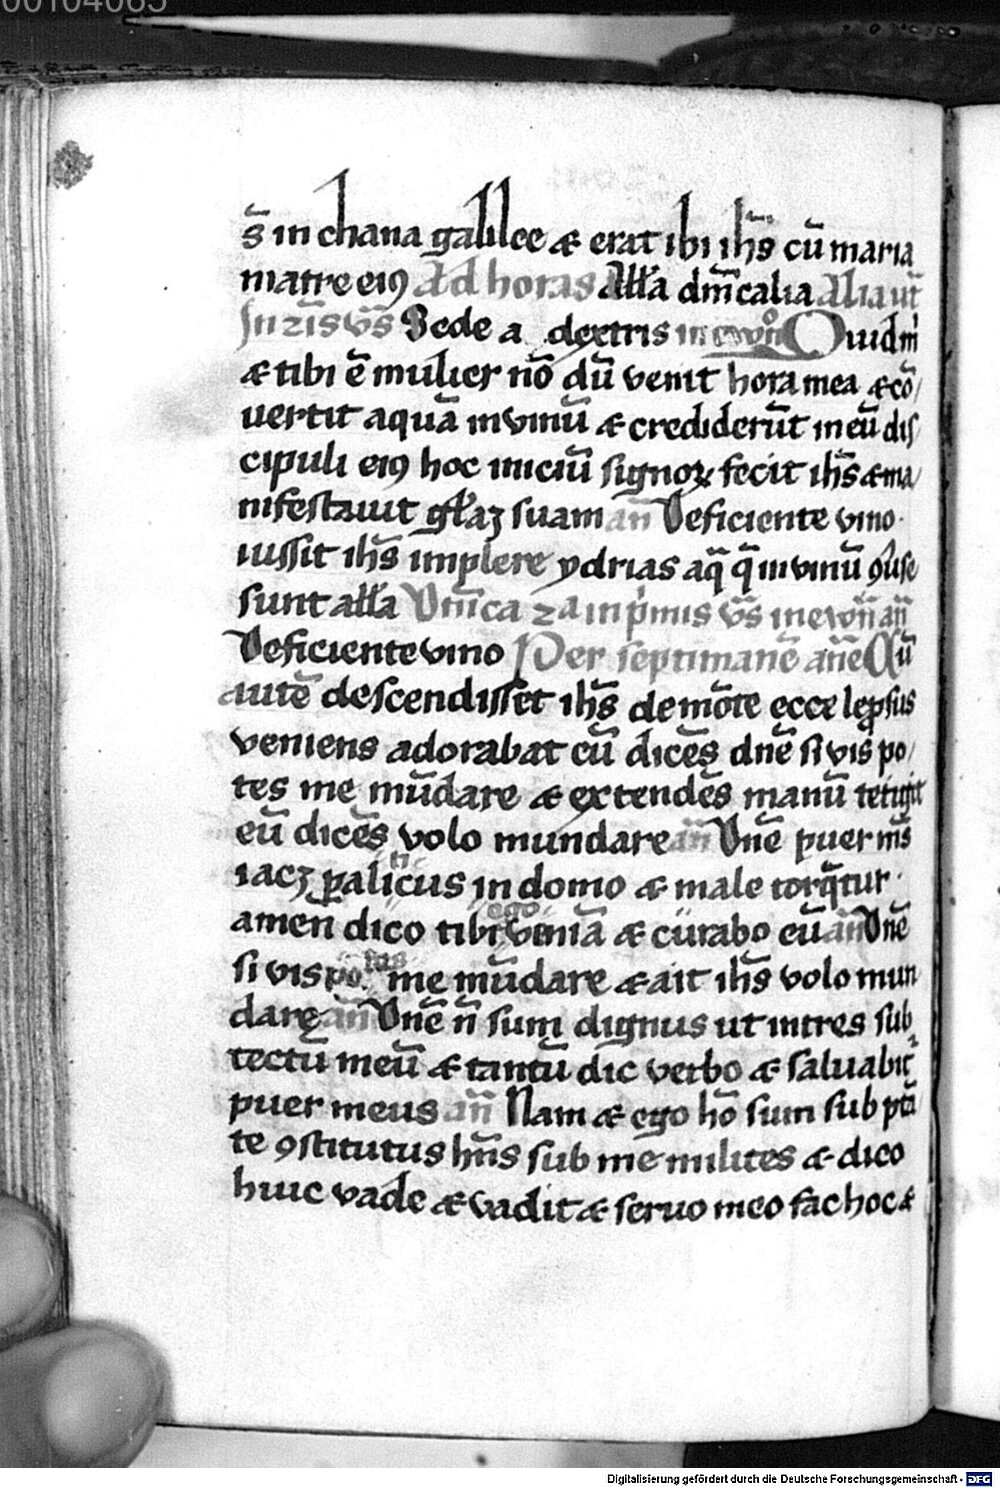 00104065
s̄ in chana galilee ⁊ erat ibi ih̄s cū maria
matre ei9 Ad horas Allā dn̄icalia Alia ut
In 2is vs̄ Sede a dextris in ewōn Quid m̄
⁊ tibi ē mulier nō dū venit hora mea ⁊ cō/
uertit aquā in vinū ⁊ crediderūt in eū dis
cipuli ei9 hoc iniciū signoꝝ fecit ih̄s ⁊ ma/
nifestauit gl̄aꝫ suam an̄ Deficiente vino.
iussit ih̄s implere ydrias aq̄ q̄ in vinū ꝯuſe
sunt all̄a Dn̄ica 2a in p̄mis vs̄ in ewn̄ an̄
Deficiente vino Per septimanē an̄e Cū
autē descendisset ih̄s de mōte ecce lep̱sus
veniens adorabat eū dicēs dn̄e si vis po/
tes me mūdare ⁊ extendēs manū tetigit
eū dicēs volo mundare an̄ Dn̄e puer m̄s
iacꝫ ꝑaliticus in domo ⁊ male torq̄tur.
amen dico tibi ego veniā ⁊ curabo eū an̄ Dn̄e
si vis potes me mūdare ⁊ ait ih̄s volo mun
dare an̄ Dn̄e n̄ sum dignus ut intres sub
tectū meū ⁊ tantū dic verbo ⁊ saluabit̉
puer meus an̄ Nam ⁊ ego hō sum sub ptā
te ꝯstitutus hn̄s sub me milites ⁊ dico
huic vade ⁊ vadit ⁊ seruo meo fac hoc ⁊
Digitalisierung gefördert durch die Deutsche Forschungsgemeinschaft - DFG